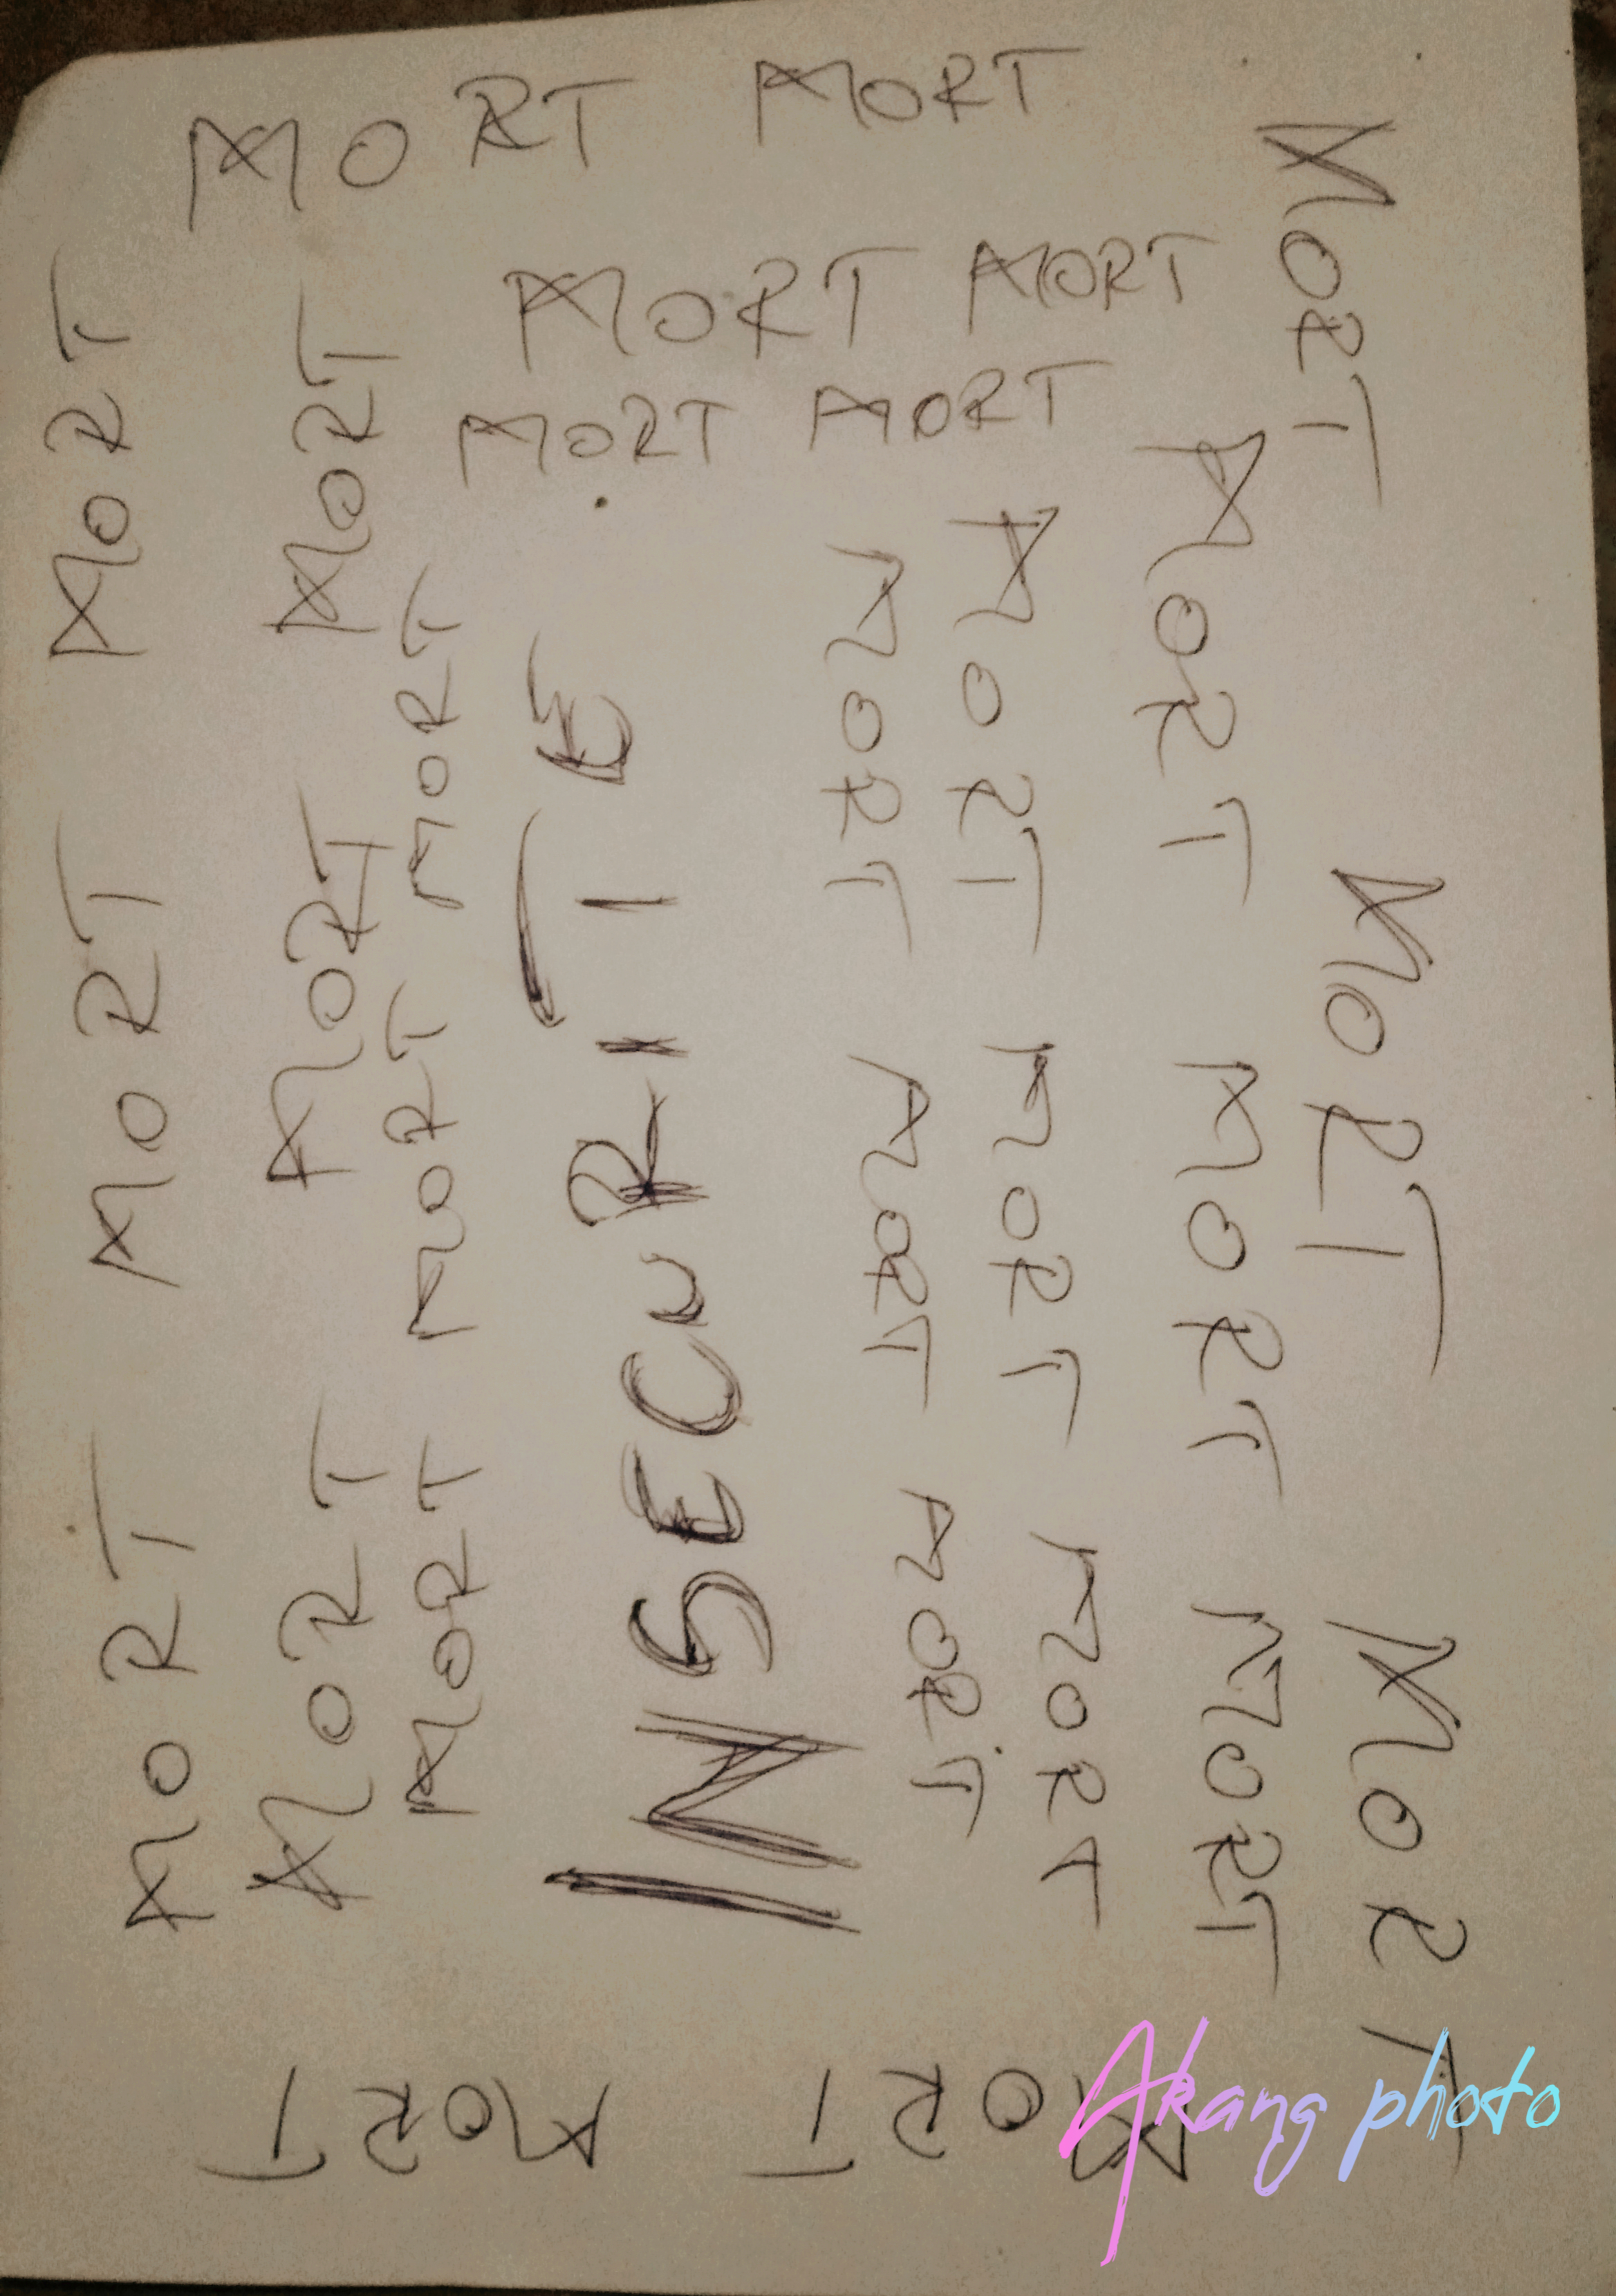 MORT MORT
MORT MORT
MORT MORT
MORT MORT MORT
MORT MORT MORT
MORT MORT MORT
INSECURITÉ
MORT MORT MORT
MORT MORT MORT
MORT MORT MORT
MORT MORT MORT
MORT MORT
Akang photo